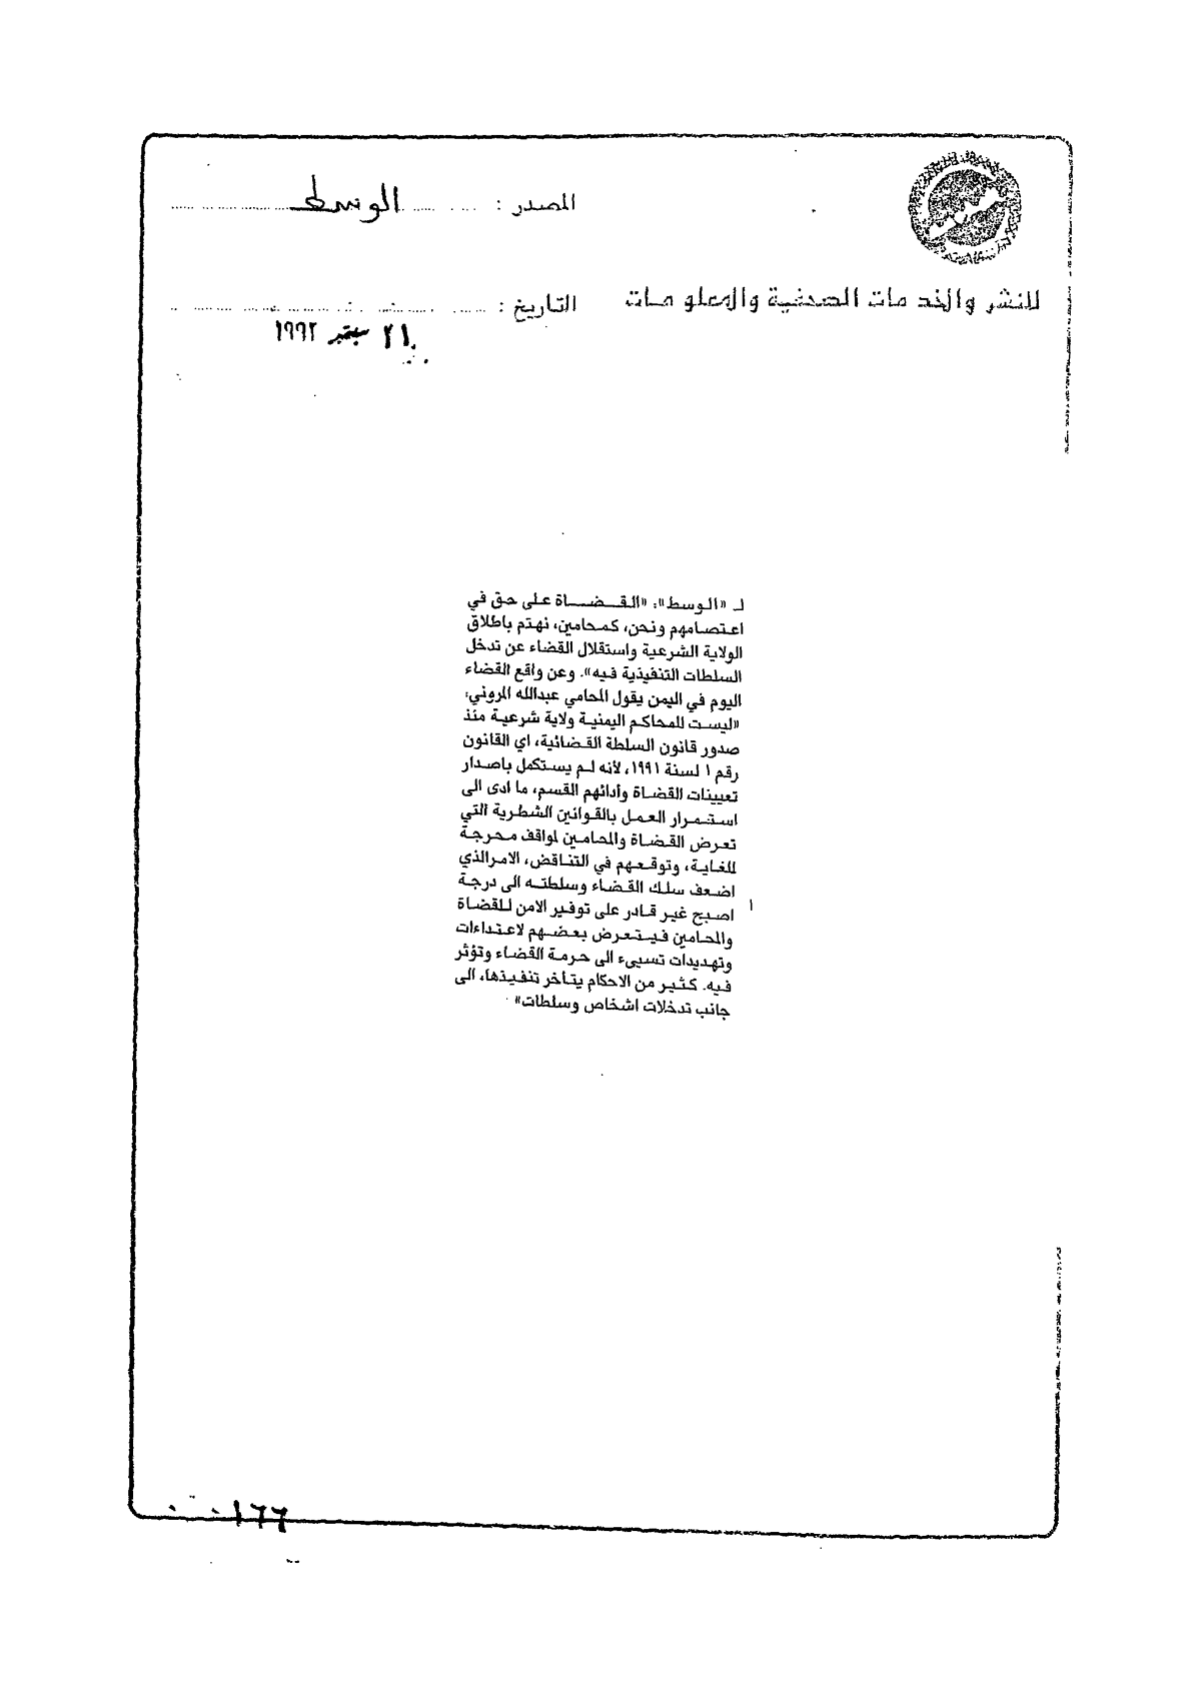 المصدر : الوسط
للنشر والخدمات الصحفية والمعلومات
التاريخ :
٢١ سبتمبر ١٩٩٢
لـ «الوسط»: «القضاة على حق في
اعتصامهم ونحن، كمحامين، نهتم باطلاق
الولاية الشرعية واستقلال القضاء عن تدخل
السلطات التنفيذية فيه». وعن واقع القضاء
اليوم في اليمن يقول المحامي عبدالله المروني:
«ليست للمحاكم اليمنية ولاية شرعية منذ
صدور قانون السلطة القضائية، اي القانون
رقم ١ لسنة ١٩٩١، لأنه لم يستكمل باصدار
تعيينات القضاة وأدائهم القسم، ما ادى الى
استمرار العمل بالقوانين الشطرية التي
تعرض القضاة والمحامين لمواقف محرجة
للغاية، وتوقعهم في التناقض، الامرالذي
اضعف سلك القضاء وسلطته الى درجة
اصبح غير قادر على توفير الامن للقضاة
والمحامين فيتعرض بعضهم لاعتداءات
وتهديدات تسيىء الى حرمة القضاء وتؤثر
فيه. كثير من الاحكام يتأخر تنفيذها، الى
جانب تدخلات اشخاص وسلطات»
١٦٦